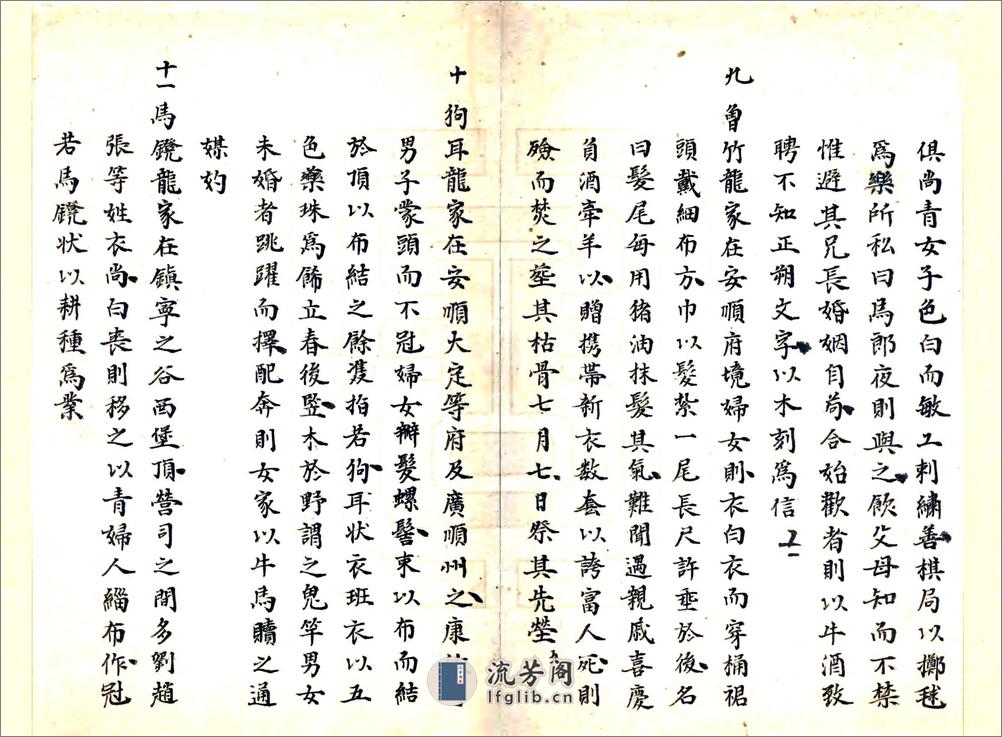 俱尚青女子色白而敏工刺繡善棋局以擲毬
為樂所私曰馬郎夜則與之飲父母知而不禁
惟避其兄長婚姻自苟合始歡者則以牛酒致
聘不知正朔文字以木刻為信
九 曾竹龍家在安順府境婦女則衣白衣而穿桶裙
頭戴細布方巾以髮紮一尾長尺許垂於後名
曰髮尾每用猪油抹髮其氣難聞遇親戚喜慶
負酒牽羊以贈携帶新衣数套以誇富人死則
殮而焚之塟其枯骨七月七日祭其先塋
十 狗耳龍家在安順大定等府及廣順州之康
男子蒙頭而不冠婦女辮髮螺髻束以布而結
於頂以布結之餘雙指若狗耳状衣班衣以五
色藥珠為餙立春後竪木於野謂之鬼竿男女
未婚者跳躍而擇配奔則女家以牛馬贖之通
媒妁
十一 馬鐙龍家在鎮寧之谷西堡頂營司之間多劉趙
張等姓衣尚白喪則移之以青婦人緇布作冠
若馬鐙状以耕種為業
流芳阁
lfglib.cn